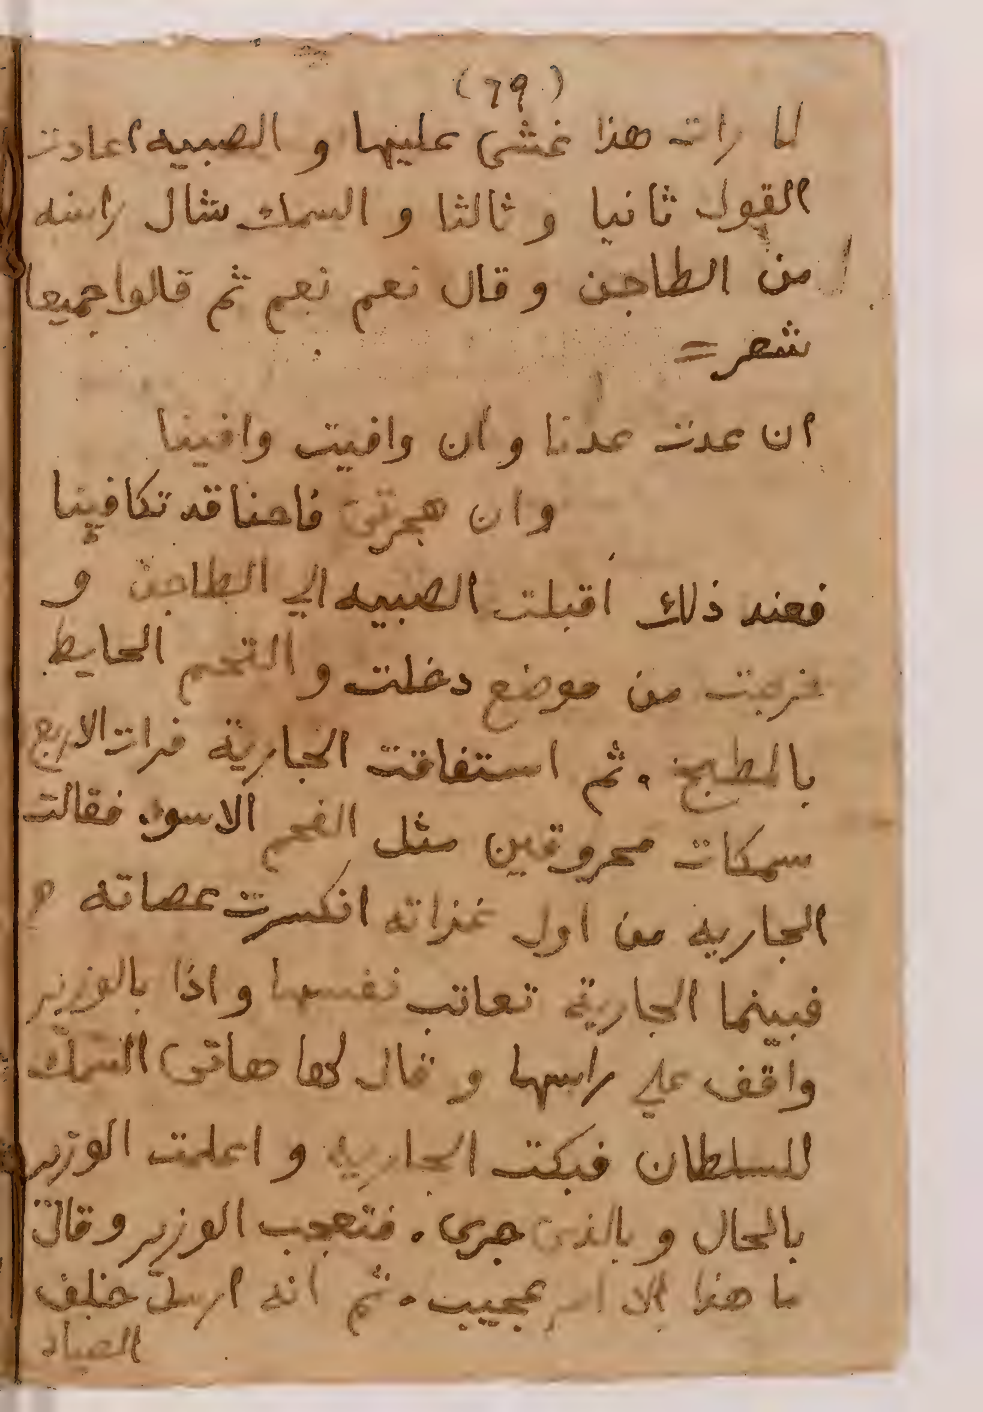 (٦٩)
لما رات هذا غشى عليها و الصبيه اعادت
القول ثانيا و ثالثا و السمك شال راسه
من الطاجن و قال نعم نعم ثم قالوا جميعا
شعر =
ان عدت عدنا و ان وافيت وافينا
و ان هجرتى فاحنا قد تكافينا
فعند ذلك اقبلت الصبيه الي الطاجن و
خرجت من موضع دخلت و التحم الحايط
بالمطبخ . ثم استفاقت الجارية فرات الاربع
سمكات محروقين مثل الفحم الاسود فقالت
الجاريه من اول غزاته انكسرت عصاته
فبينما الجارية تعاتب نفسها و اذا بالوزير
واقف علي راسها و قال لها هاتى السمك
للسلطان فبكت الجاريه و اعلمت الوزير
بالحال و بالذى جرى . فتعجب الوزير و قال
ما هذا الا امر عجيب . ثم انه ارسل خلف
الصياد